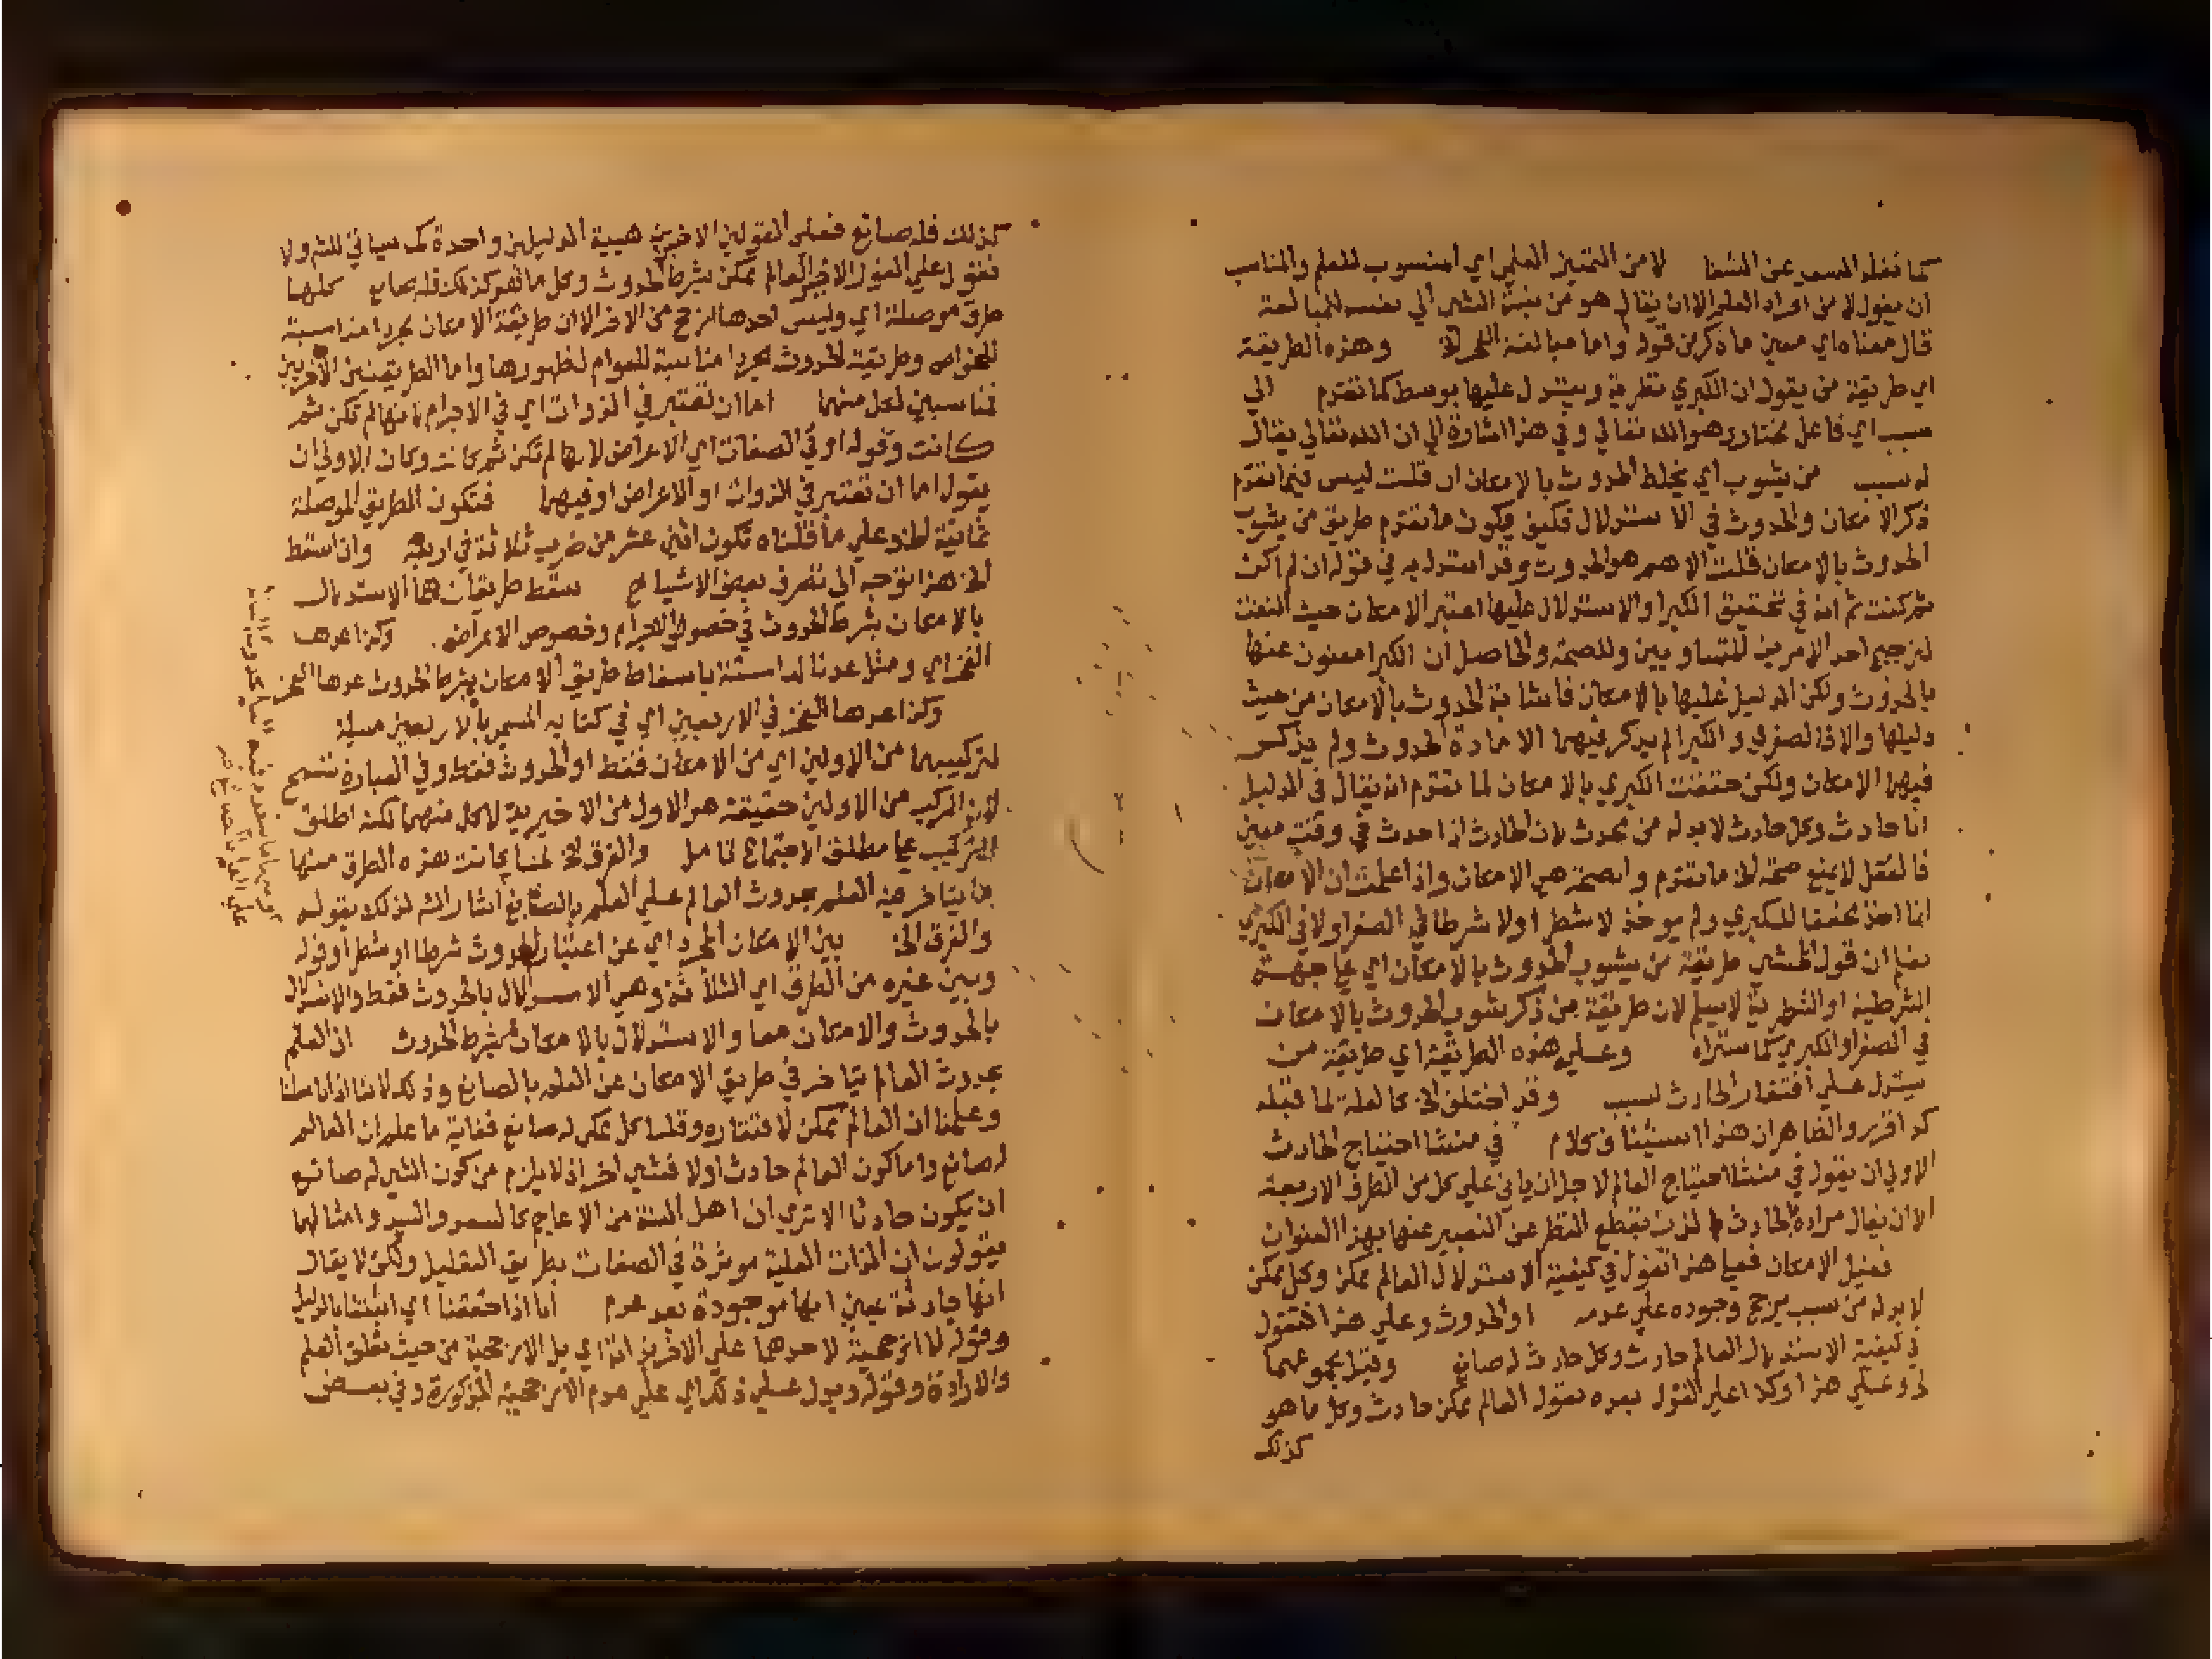 كما نقله السعد عن الشفا لا من التمييز العلمي اي المنسوب للعلم والمناسب
ان يقول لا من افراد العلم الا ان يقال هو من نسبة الشي الي نفسه للمبالغة
قال معناه اي معين ما ذكر من قوله واما مبالغة الخ وهذه الطريقة
اي طريقة من يقول ان الكبري نظرية ويستدل عليها بوسط كما تقدم الي
سبب اي فاعل مختار وهو الله تعالي وفي هذا اشارة الي ان الله تعالي يقال
له سبب من يشوب اي يخلط الحدوث بالامكان ان قلت ليس فيما تقدم
ذكر الامكان والحدوث في الاستدلال فكيف يكون ما تقدم طريق من يشوب
الحدوث بالامكان قلت الاهم هو الحدوث وقد استدل به في قوله ان لم اكن
ثم كنت ثم انه في تحقيق الكبرا والاستدلال عليها اعتبر الامكان حيث التفت
لترجيح احد الامرين المتساويين وللصحة والحاصل ان الكبرا معنون عنها
بالحدوث ولكن الدليل عليها بالامكان فاشابة الحدوث بالامكان من حيث
دليلها والا فالصغري والكبرا لم يذكر فيهما الا مادة الحدوث ولم يذكر
فيهما الامكان ولكن حققت الكبري بالامكان لما تقدم انه يقال في الدليل
انا حادث وكل حادث لا بد له من محدث لان الحادث اذا حدث في وقت معين
فالعقل لا يمنع صحة الخ ما تقدم والصحة هي الامكان واذا علمت ان الامكان
انما اخذ محققا للكبري ولم يوخذ لا شطرا ولا شرطا في الصغرا ولا في الكبري
تعلم ان قول المحشي طريقة من يشوب الحدوث بالامكان اي علي جهة
الشرطية او الشطرية لا يسلم لان طريقة من ذكر يشوب الحدوث بالامكان
في الصغرا والكبري كما ستراه وعلي هذه الطريقة اي طريقة من
يستدل علي افتقار الحادث لسبب وقد اختلف الخ كالعلة لما قبله
كذا قرر والظاهر ان هذا استيناف كلام في منشا احتياج الحادث
الاولي ان يقول في منشا احتياج العالم لاجل ان ياتي علي كل من الطرق الاربعة
الا ان يقال مراده بالحادث الذات بقطع النظر عن التعبير عنها بهذا العنوان
فقيل الامكان فعلي هذا تقول في كيفية الاستدلال العالم ممكن وكل ممكن
لا بد له من سبب يرجح وجوده علي عدمه او الحدوث وعلي هذا فتقول
في كيفية الاستدلال العالم حادث وكل حادث له صانع وقيل مجموعهما
الخ وعلي هذا وكذا علي القول بعده تقول العالم ممكن حادث وكل ما هو
كذلك
كذلك فله صانع فعلي القولين الاخيرين هيية الدليلين واحدة كما سياتي للش ولا
فتقول علي القول الاخير العالم ممكن بشرط الحدوث وكل ما هو كذلك فله صانع كلها
طرق موصلة اي وليس احدها ارجح من الاخر الا ان طريقة الامكان مجردا مناسبة
للخواص وطريقة الحدوث مجردا مناسبة للعوام لظهورها واما الطريقتين الاخريين
فمناسبين لكل منهما اما ان تعتبر في الذوات اي في الاجرام لانها لم تكن ثم
كانت وقوله او في الصفات اي الاعراض لانها لم تكن ثم كانت وكان الاولي ان
يقول اما ان تعتبر في الذوات او الاعراض او فيهما فتكون الطريق الموصلة
ثمانية الخ وعلي ما قلناه تكون اثني عشر من ضرب ثلاثة في اربعة وان اسقط
الخ هذا توجه الي تصرف بعض الاشياخ سقط طريقان هما الاستدلال
بالامكان بشرط الحدوث في خصوص الاجرام وخصوص الاعراض. وكذا عدها
الفخر اي ومثل عدنا لها ستة باسقاط طريق الامكان بشرط الحدوث عدها الفخر
وكذا عدها الفخر في الاربعين اي في كتابه المسمي بالاربعين مسيلة
لتركيبهما من الاولين اي من الامكان فقط او الحدوث فقط وفي العبارة تسمح
لان المركب من الاولين حقيقة هو الاول من الاخيرين لا كل منهما لكنه اطلق
التركيب علي مطلق الاجتماع تامل والفرق الخ لما كانت هذه الطرق منها
ما يتاخر فيه العلم بحدوث العالم علي العلم بالصانع اشار الش لذلك بقوله
والفرق الخ بين الامكان المجرد اي عن اعتبار الحدوث شرطا او شطرا وقوله
وبين غيره من الطرق اي الثلاثة وهي الاستدلال بالحدوث فقط والاستدلال
بالحدوث والامكان معا والاستدلال بالامكان بشرط الحدوث ان العلم
بحدوث العالم يتاخر في طريق الامكان عن العلم بالصانع وذلك لاننا اذا تاملنا
وعلمنا ان العالم ممكن لافتقاره وقلنا كل ممكن له صانع فغاية ما علم ان العالم
له صانع واما كون العالم حادث اولا فشي اخر اذ لا يلزم من كون الشي له صانع
ان يكون حادثا الا تري ان اهل السنة من الاعاجم كالسعد والسيد وامثالهما
يقولون ان الذات العلية موثرة في الصفات بطريق التعليل ولكن لا يقال
انها حادثة بمعني انها موجودة بعد عدم اما اذا حققنا اي اثبتنا بالدليل
وقوله لا ارجحية لاحدهما علي الاخر اي بل الارجحية من حيث تعلق العلم
والارادة وقوله ويدل علي ذلك اي علي عدم الارجحية المذكورة وفي بعض